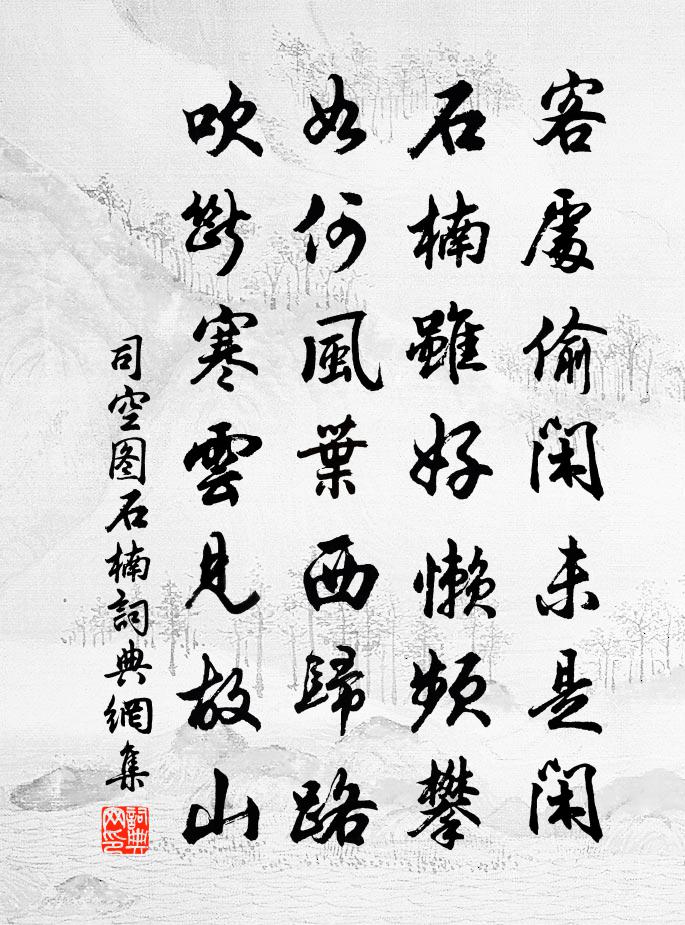 客處偷閑未是閑
石楠雖好懶頻攀
如何風葉西歸路
吹斷寒雲見故山
司空图石楠詞典網集
詞典网印